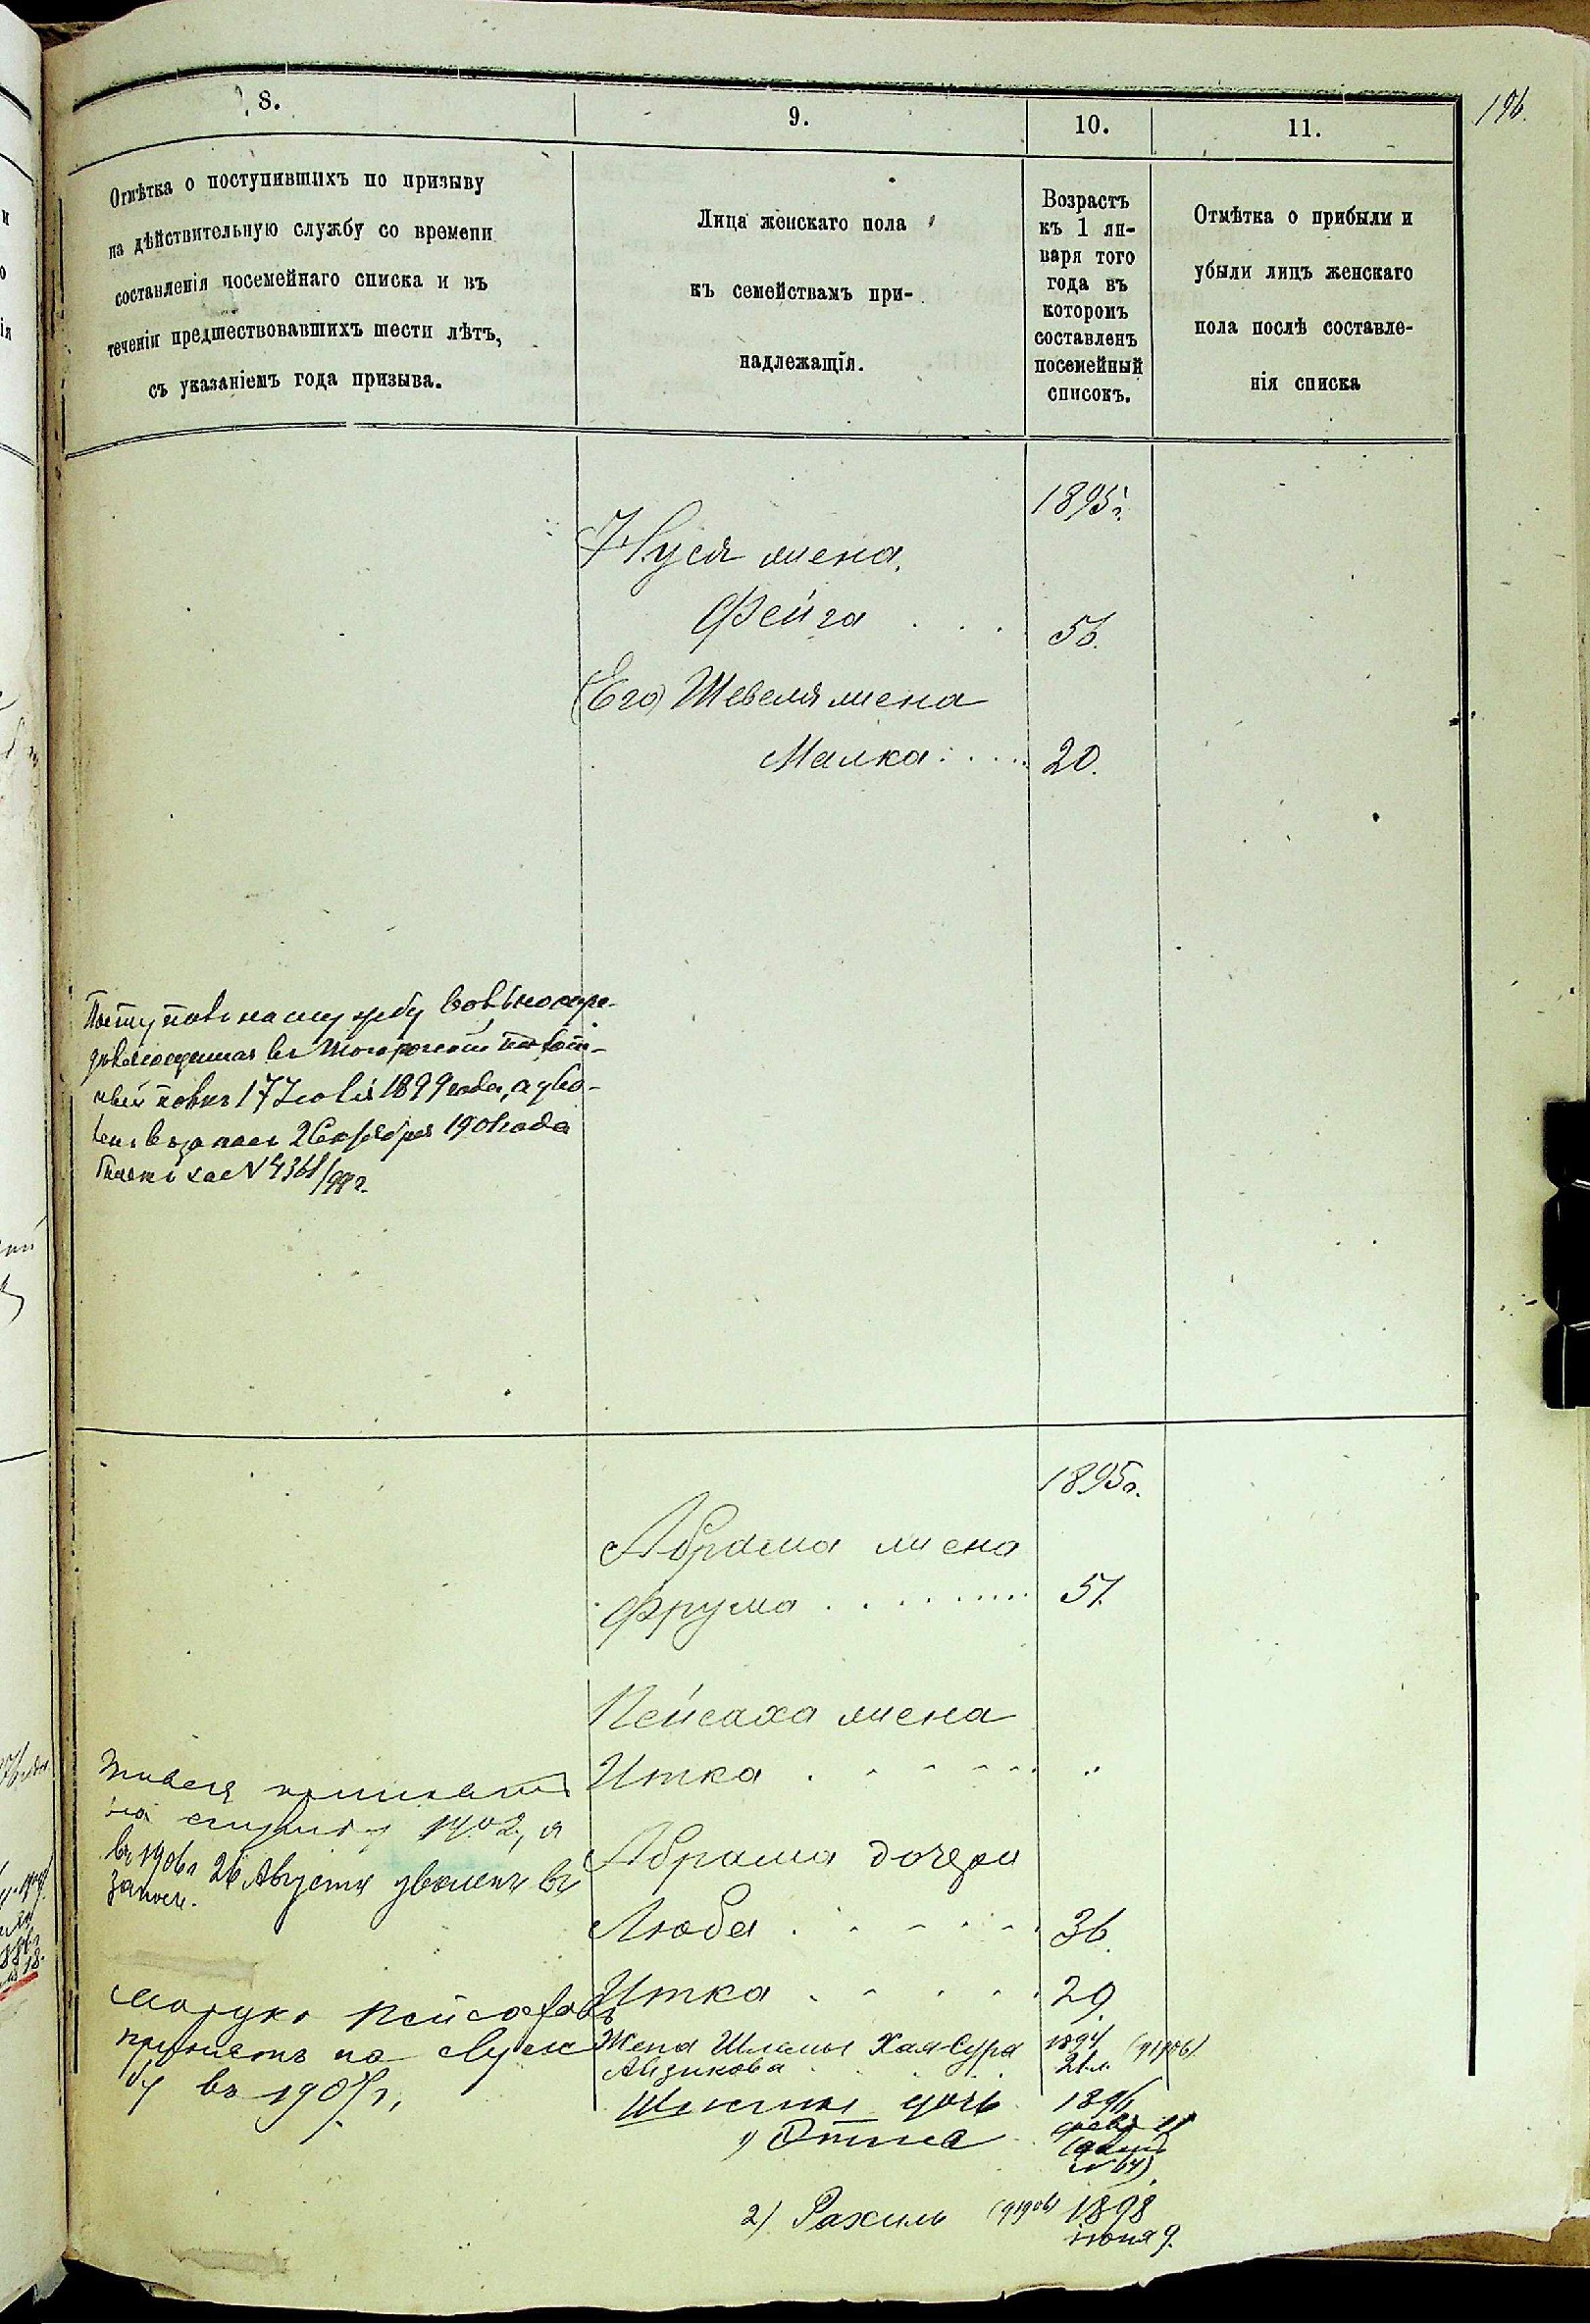 196.
8.
9.
10.
11.
Отмѣтка о поступившихъ по призыву
на дѣйствительную службу со времени
составленія посемейнаго списка и въ
теченіи предшествовавшихъ шести лѣтъ,
съ указаніемъ года призыва.
Лица женскаго пола
къ семействамъ при-
надлежащія.
Возрастъ
къ 1 ян-
варя того
года въ
которомъ
составленъ
посемейный
списокъ.
Отмѣтка о прибыли и
убыли лицъ женскаго
пола послѣ составле-
нія списка
1895 г.
Нуся жена
Фейга . . . 56.
(Его) Шевеля жена
Малка . . . . 20.
Поступовъ на службу
17 Іюля 1899 года, а уво-
въ запасъ 1901 года
1895 г.
Абрама жена
Фрума . . . . . . . . 51.
Пейсаха жена
Итка . . . . . . "
на службу 1902, а
въ 1906 г 26 Августа уволенъ въ
запасъ.
Абрама дочери
Люба . . . . . 36.
Итка . . . . . 29.
Пейсаховъ
принятъ на служ
бу въ 1907 г.
Жена Шлемы Хая-Сура 1894 (91906)
Айзикова 21 л.
дочь 1896
1)
2) Рахиль (91906) 1898
іюня 9.